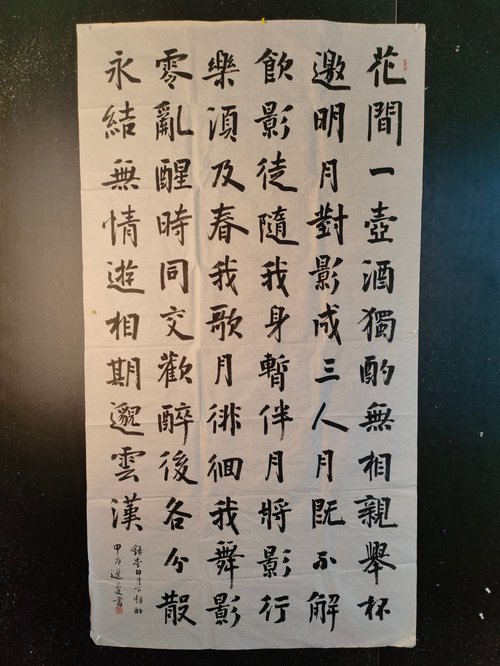 花間一壺酒獨酌無相親舉杯
邀明月對影成三人月既不解
飲影徒隨我身暫伴月將影行
樂湏及春我歌月徘徊我舞影
零亂醒時同交歡醉後各分散
永結無情遊相期邈雲漢
錄李白月下獨酌
甲辰書